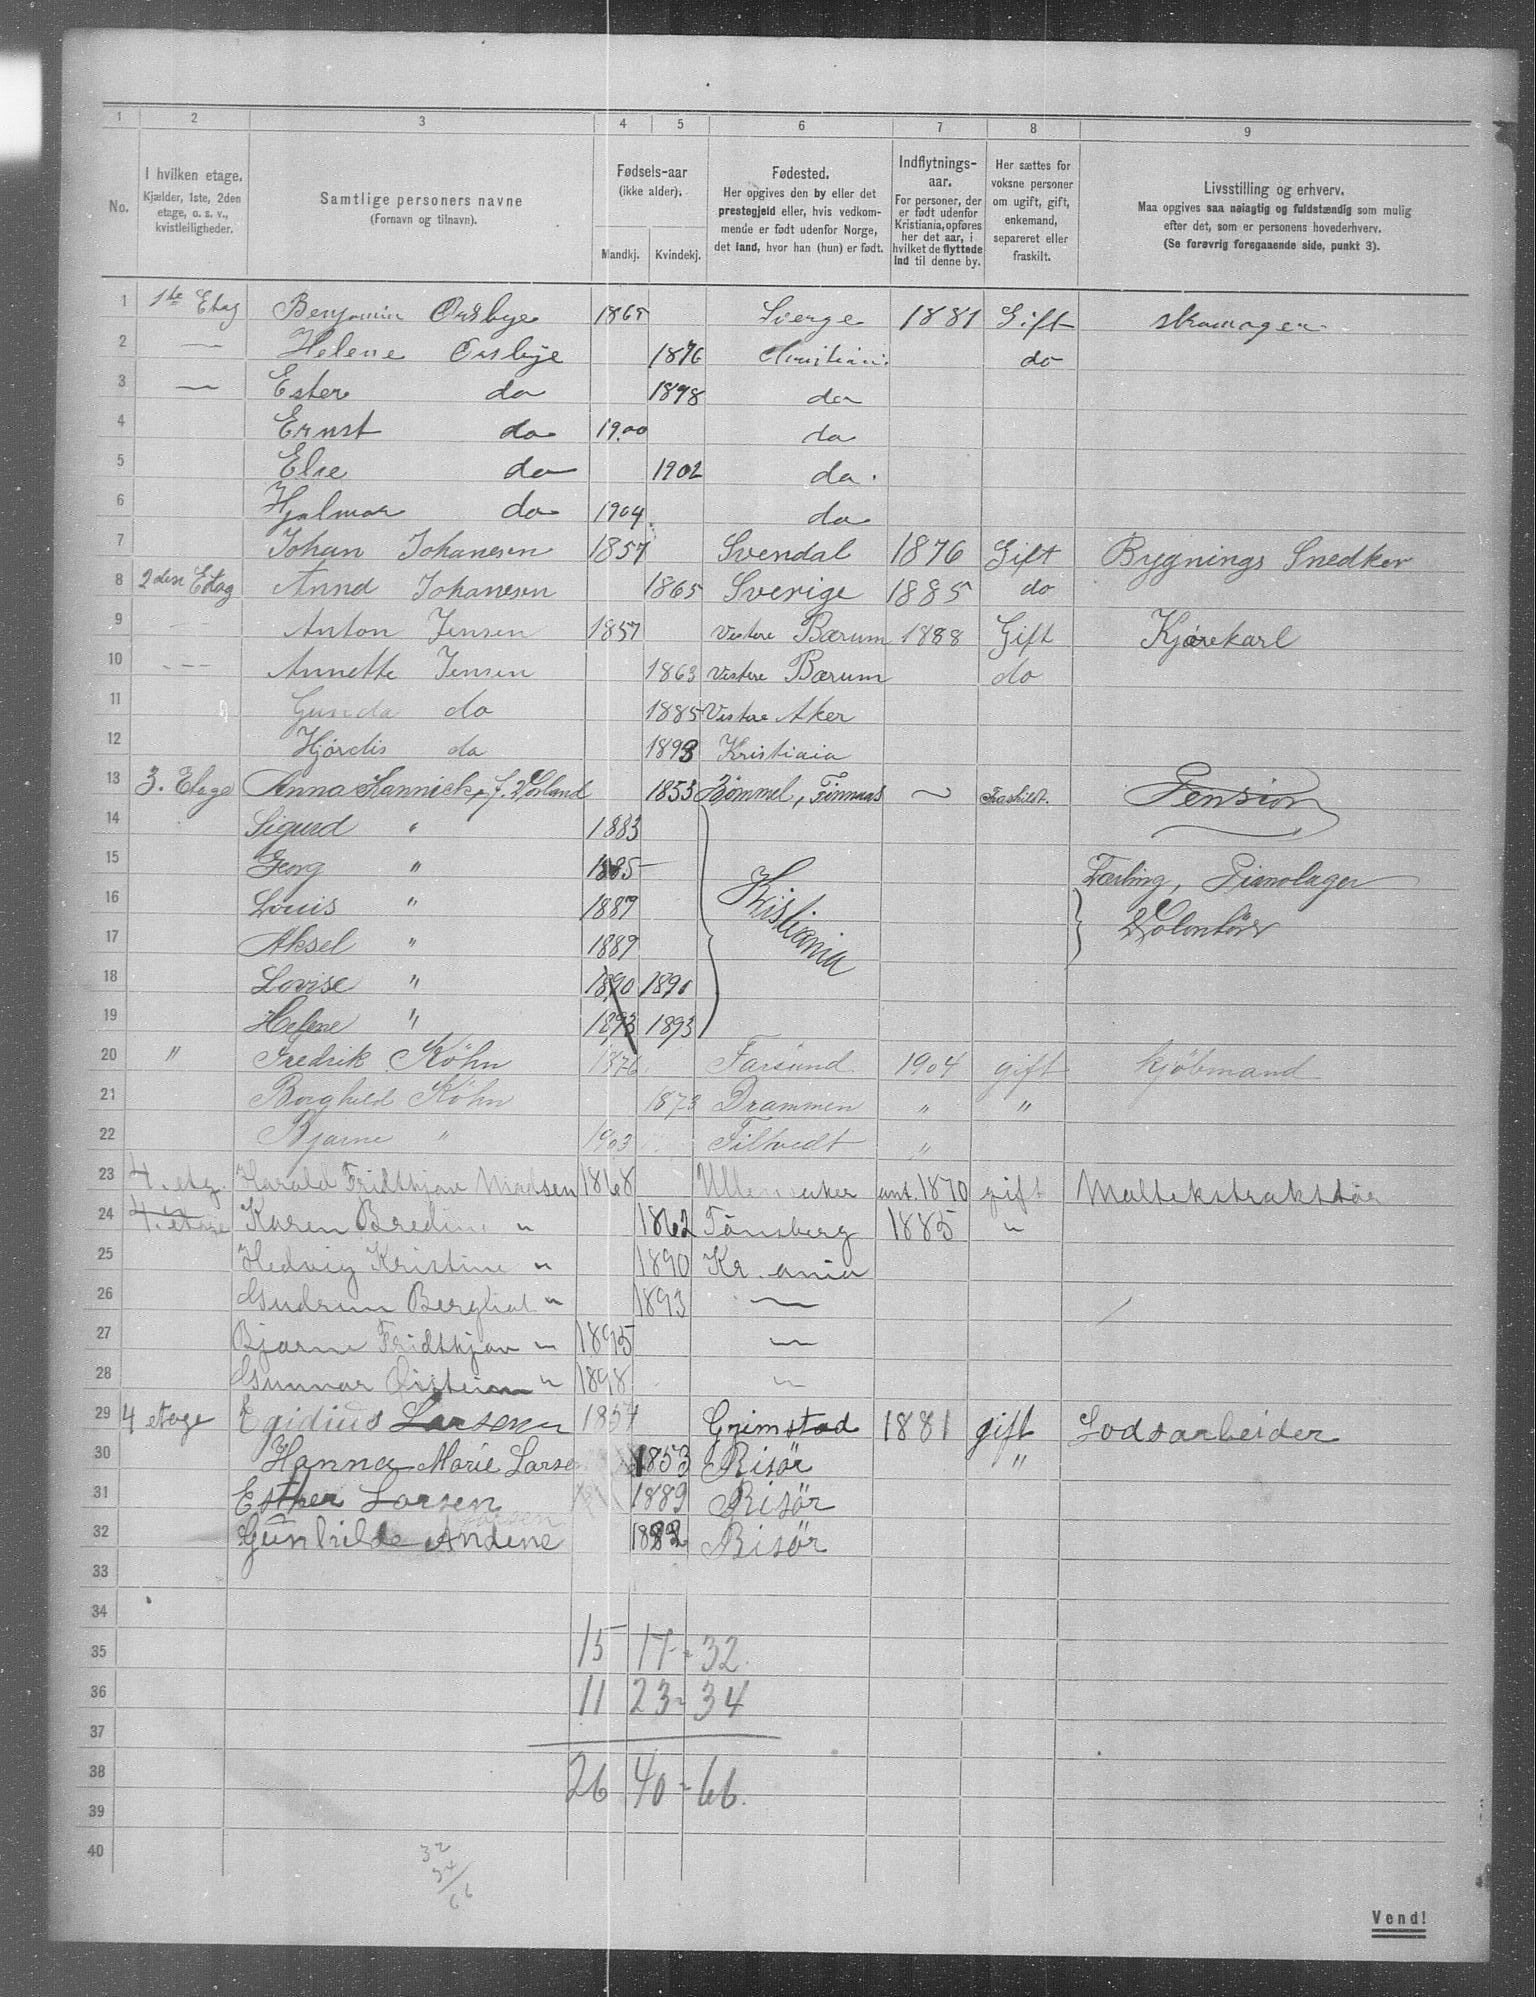 1 2 3 4 5 6 7 8 9
No.
I hvilken etage.
Kjælder, 1ste, 2den
etage, o. s. v.,
kvistleiligheder.
Samtlige personers navne
(Fornavn og tilnavn).
Fødsels-aar
(ikke alder).
Mandkj. Kvindekj.
Fødested.
Her opgives den by eller det
prestegjeld eller, hvis vedkom-
mende er født udenfor Norge,
det land, hvor han (hun) er født.
Indflytnings-
aar.
For personer, der
er født udenfor
Kristiania, opføres
her det aar, i
hvilket de flyttede
ind til denne by.
Her sættes for
voksne personer
om ugift, gift,
enkemand,
separeret eller
fraskilt.
Livsstilling og erhverv.
Maa opgives saa nøiagtig og fuldstændig som mulig
efter det, som er personens hovederhverv.
(Se forøvrig foregaaende side, punkt 3).
1 1ste Etag Benjamin 1865 Sverge 1881 Gift skomager
2 — Helene 1876 Christiani. do
3 — Ester do 1898 do
4 Ernst do 1900 do
5 Else do 1902 do.
6 Hjalmar do 1904 do
7 Johan Johanesen 1857 Svendal 1876 Gift Bygnings Snedker
8 2den Etag Anna Johanesen 1865 Sverige 1885 do
9 Anton Jensen 1857 Vestere Bærum 1888 Gift Kjørekarl
10 — Annette Jensen 1863 Vestere Bærum do
11 Gunda do 1885 Vestre Aker
12 Hjørdis do 1898 Kristiaia
13 3. Etage Anna Hannick, f. Vorland 1853 Bömmel, Finnaas ~ Fraskildt. Pension
14 Sigurd " 1883
15 Georg " 1885 Lærling, Pianolager
16 Louis " 1887 Kristiania Volontör
17 Aksel " 1889
18 Lovise " 1890 1890
19 Helene " 1893 1893
20 " Fredrik Köhn 1876 Farsund 1904 gift kjöbmand
21 Borghild Köhn 1873 Drammen " "
22 Bjarne " 1903 Filtvedt "
23 4. etg. Harald Fridthjov Madsen 1868 Ullensaker ant. 1870 gift Maltekstraktför
24 4. etage Karen Bredine " 1862 Tönsberg 1885 "
25 Hedvig Kristine " 1890 Kr. ania
26 Gudrun Bergliot " 1893 —
27 Bjarne Fridthjov " 1895 —
28 Gunnar Öistein " 1898 —
29 4 etage Egidius Larsen 1857 Grimstad 1881 gift Lodsarbeider
30 Hanna Marie Larse 1853 Risör "
31 Esther Larsen 1889 Risör
Larsen
32 Gunhilde Andene 1882 Risör
33
34
35 15 17 = 32.
36 11 23 = 34
37
38 26 40 = 66.
39
40
32
34
66
Vend!